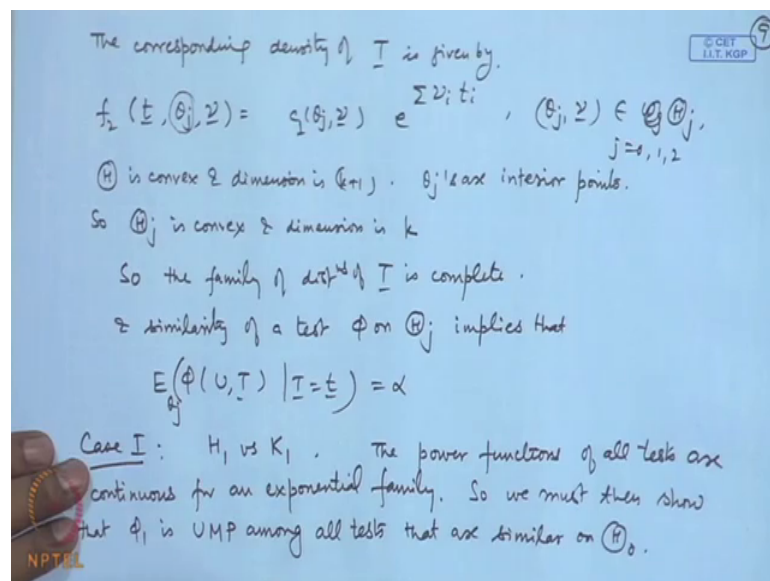 9
© CET
I.I.T. KGP
The corresponding density of T is given by.
f₂ (t, θj, ν) = q(θj, ν) e^{Σ νi ti} , (θj, ν) ∈ Ⓗj,
j=0, 1, 2
Ⓗ is convex & dimension is (k+1). θj's are interior points.
So Ⓗj is convex & dimension is k
So the family of distns of T is complete.
& similarity of a test φ on Ⓗj implies that
E_{θj} (φ(U, T) | T = t) = α
Case I : H₁ vs K₁ . The power functions of all tests are
continuous for an exponential family. So we must then show
that φ₁ is UMP among all tests that are similar on Ⓗ₀.
NPTEL